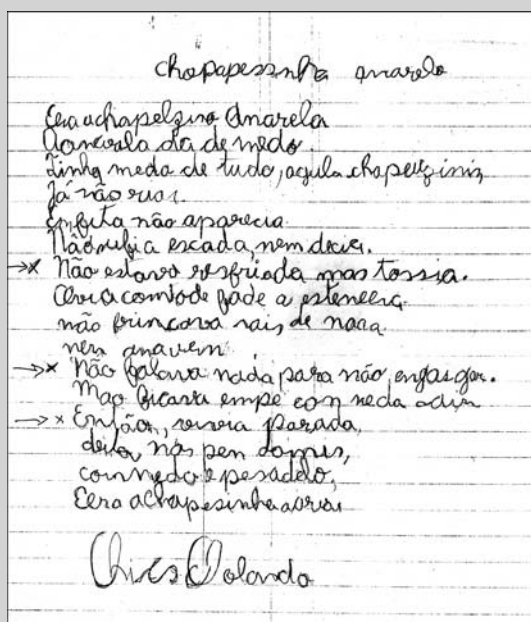 chapapessinha amarelo
Era a chapelzino Amarela
da de medo.
Tinha medo de tudo, aqula chapeuzinin
Já não rua.
Em festa não aparecia.
Não subia escada, nem decia.
→x Não estava resfriada mas tossia.
conto de fade a
não brincava mais de nada
nem
→x Não falava nada para não engasgar.
ficava empé con meda
→x Então, vivia parada,
deita, nas
con medo e pesadelo,
Eera a chapesinha
Chico Oolando